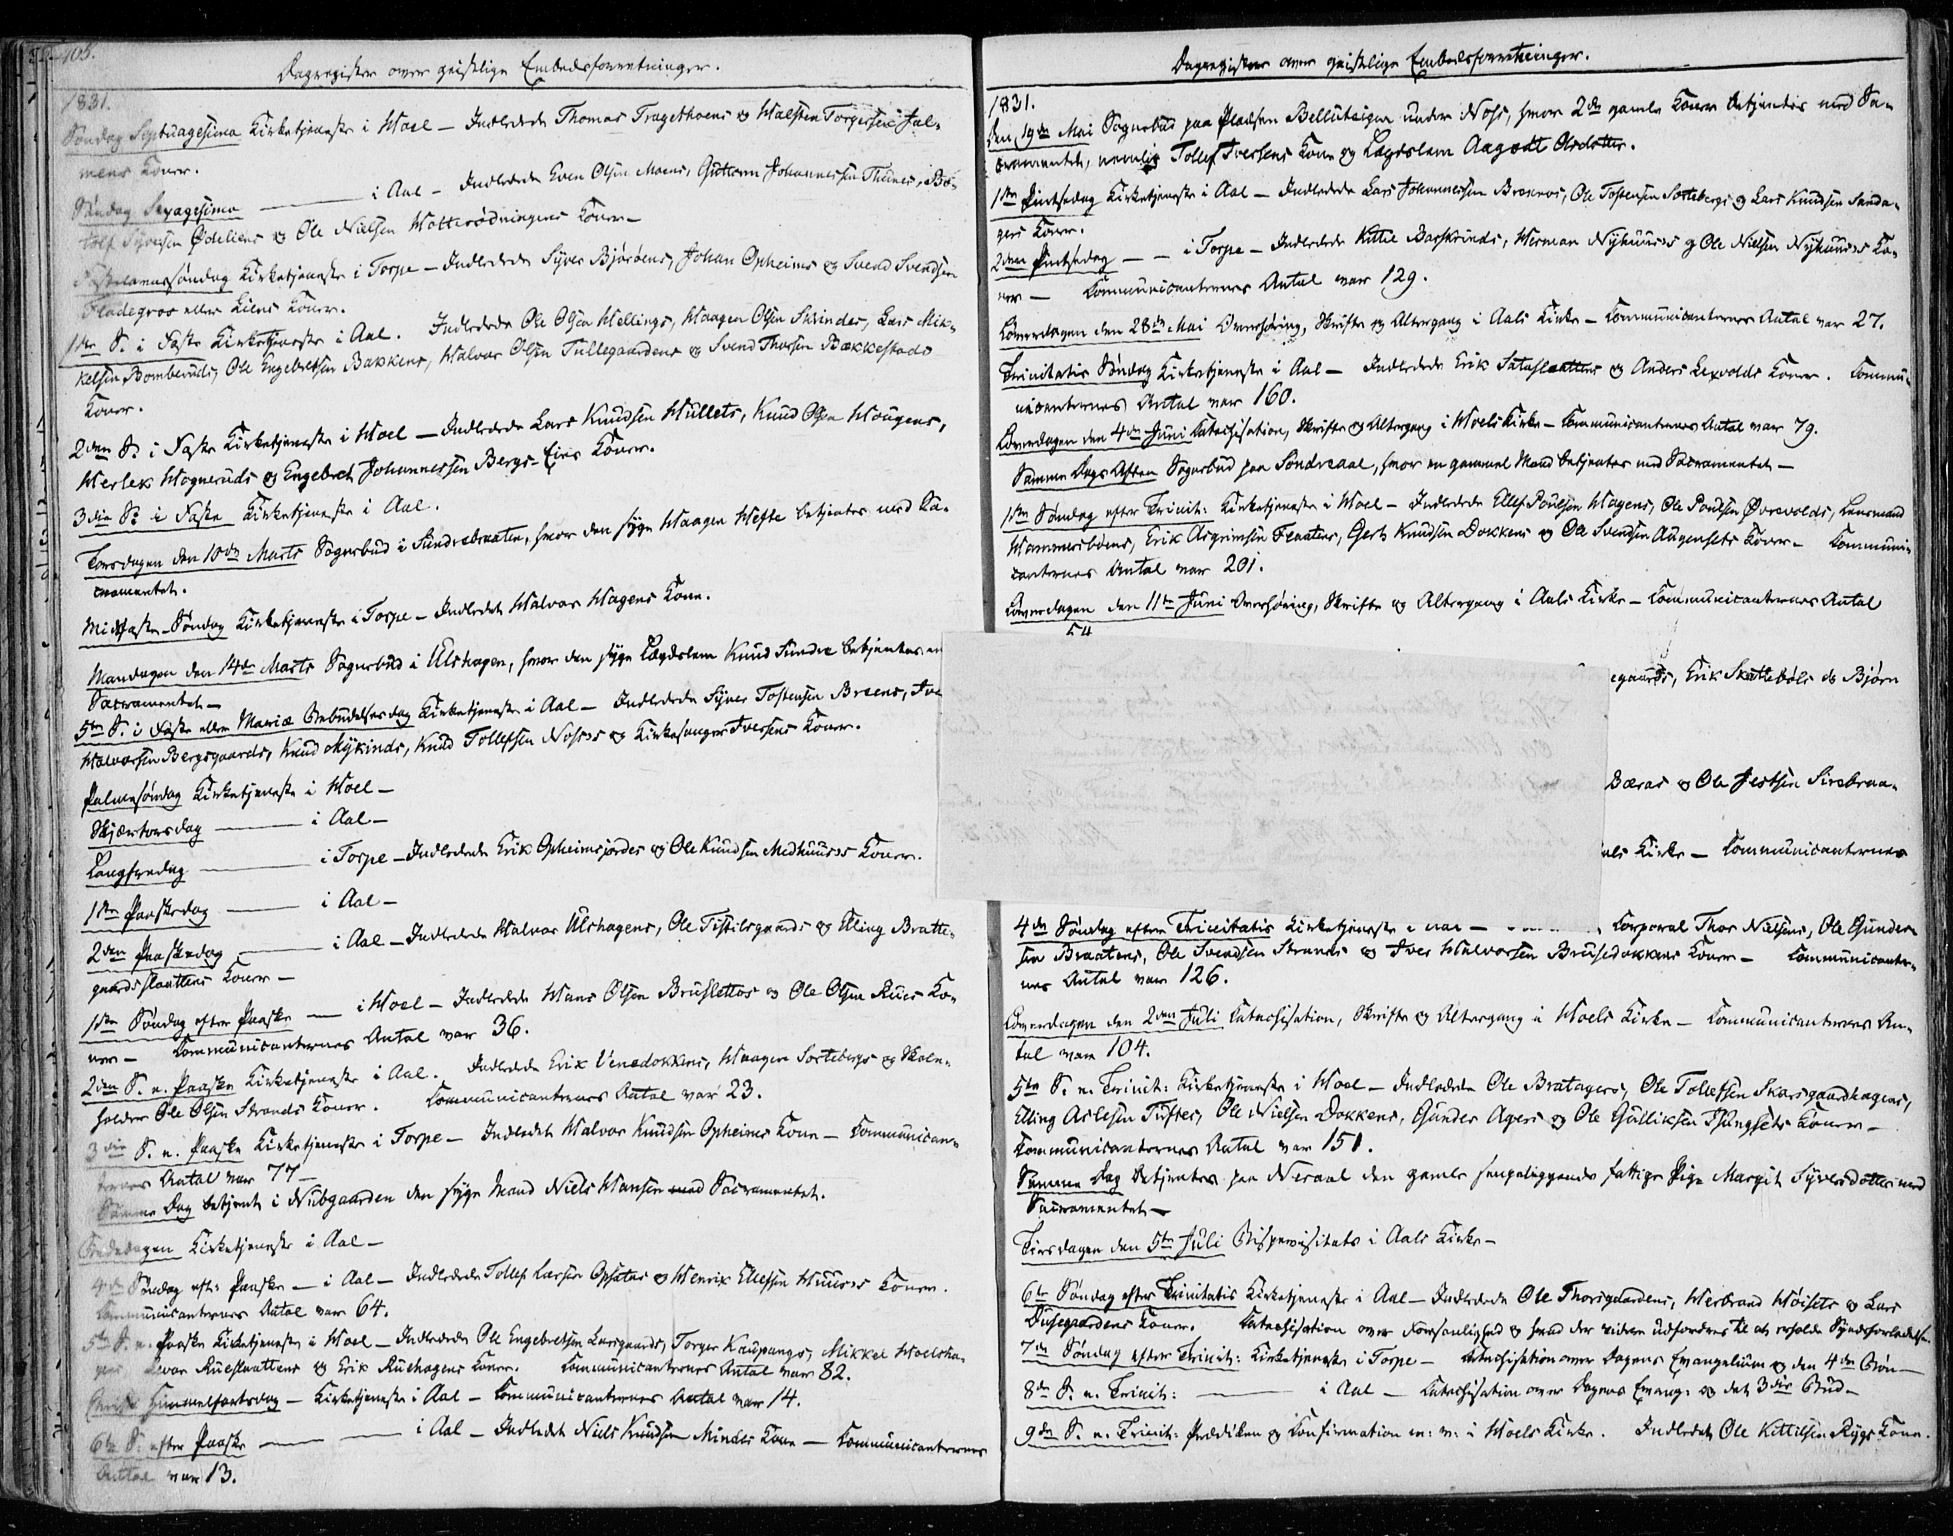 405.
Dagregister over geistlige Embedsforretninger.
1831.
Søndag Septuagesima Kirketjeneste i Hoel – Indledede Thomas Tragethoens og Halsten Torgersen Jal-
mens Koner.
Søndag Sexagesima ——— i Aal – Indledede Even Olsen Moens, Guttorm Johannessen Thunes, Bo-
tolf Syversen Ødeliens og Ole Nielsen Holterødningens Koner –
Fastelavnssøndag Kirketjeneste i Torpe – Indledede Syver Bjøröens, Johan Opheims og Svend Svendsen
Fladegros eller Liens Koner.
1ste S. i Faste Kirketjeneste i Aal. Indledede Ole Olsen Hellings, Haagen Olsen Skrindes, Lars Mik-
kelsen Bomberuds, Ole Engebretsen Bakkens, Halvor Olsen Tullegaardens og Svend Thorsen Bækkestads
Koner.
2den S. i Faste Kirketjeneste i Hoel – Indledede Lars Knudsen Hullets, Knud Olsen Hougens,
Herlek Hogneruds og Engebret Johannessen Bergs-Eies Koner.
3die S. i Faste Kirketjeneste i Aal.
Torsdagen den 10de Marts Sognebud i Sundrebraaten, hvor den syge Haagen Hefte betjentes med Sa-
cramentet.
Midfaste-Søndag Kirketjeneste i Torpe – Indledet Halvor Hagens Kone.
Mandagen den 14de Marts Sognebud i Ulshagen, hvor den syge Lægdslem Knud Sundre betjentes m
Sacramentet –
5te S. i Faste eller Mariæ Bebudelsesdag Kirketjeneste i Aal – Indledede Syver Tostensen Breens, Ive
Halvorsen Bergsgaards, Knud Mykinds, Knud Tollefsen Noss's og Kirkesanger Iversens Koner.
Palmesøndag Kirketjeneste i Hoel –
Skjærtorsdag ——— i Aal –
Langfredag ——— i Torpe – Indledede Erik Opheimsjordes og Ole Knudsen Medhuus's Koner.
1ste Paaskedag ——— i Aal –
2den Paaskedag ——— i Aal – Indledede Halvor Ulshagens, Ole Tistilsgaards og Elling Bratte-
gaardsslaattens Koner –
1ste Søndag efter Paaske —— i Hoel – Indledede Hans Olsen Bruslettos og Ole Olsen Rues Ko-
ner – Communicanternes Antal var 36.
2den S. e. Paaske Kirketjeneste i Aal. Indledede Erik Venedokkens, Haagen Sortebergs og Skole-
holder Ole Olsen Strands Koner. Communicanternes Antal var 23.
3die S. e. Paaske Kirketjeneste i Torpe – Indledet Halvor Knudsen Opheims Kone – Communican-
ternes Antal var 77 –
Samme Dag betjent i Nubgaarden den syge Mand Niels Hansen med Sacramentet.
Bededagen Kirketjeneste i Aal –
4de Søndag eft: Paaske — i Aal – Indledede Tollef Larsen Opsatas og Henrik Ellefsen Huus's Koner.
Communicanternes Antal var 64.
5te S. e. Paaske Kirketjeneste i Hoel – Indledede Ole Engebretsen Larsgaards, Torger Kaupangs, Mikkel Hoelsha-
gens, Ivar Rueslaattens og Erik Ruehagens Koner. Communicanternes Antal var 82.
Christi Himmelfartsdag – Kirketjeneste i Aal – Communicanternes Antal var 14.
6te S. efter Paaske ——— i Aal – Indledet Niels Knudsen Mindes Kone – Communicanternes
Antal var 13.
Dagregister over geistlige Embedsforretninger.
1831.
Den 19de Mai Sognebud paa Pladsen Belluteigen under Noss, hvor 2de gamle Koner betjentes med Sa-
cramentet, nemlig Tollef Iversens Kone og Lægdslem Aagodt Olsdotter.
1ste Pintsedag Kirketjeneste i Aal – Indledede Lars Johannessen Brennos, Ole Tostensen Sortebergs og Lars Knudsen Sunda-
gers Koner.
2den Pintsedag — — i Torpe – Indledede Kittil Barskrinds, Herman Nyhuus's og Ole Nielsen Nyhuus's Ko-
ner – Communicanternes Antal var 129.
Løverdagen den 28de Mai Overhøring, Skrifte og Altergang i Aals Kirke – Communicanternes Antal var 27.
Trinitatis Søndag Kirketjeneste i Aal – Indledede Erik Sataslaattens og Anders Lexvolds Koner. Commu-
nicanternes Antal var 160.
Løverdagen den 4de Juni Catechisation, Skrifte og Altergang i Hoels Kirke – Communicanternes Antal var 79.
Samme Dags Aften Sognebud paa Sondreaal, hvor en gammel Mand betjentes med Sacramentet –
1ste Søndag efter Trinit: Kirketjeneste i Hoel – Indledede Ellef Poulsen Hagens, Ole Poulsen Øvrevolds, Lensmand
Hammersbøens, Erik Asgrimsen Flaatens, Gert Knudsen Dokkens og Ole Svendsen Augensets Koner – Communi-
canternes Antal var 201.
Løverdagen den 11te Juni Overhøring, Skrifte og Altergang i Aals Kirke – Communicanternes Antal
54
egaards, Erik Skattebøls og Bjørn
Bæras og Ole Jestsen Sirebraa-
als Kirke – Communicanternes
4de Søndag efter Trinitatis Kirketjeneste i Aal – Corporal Thor Nielsens, Ole Gunder-
sen Braatens, Ole Svendsen Strands og Iver Halvorsen Brusedokkens Koner – Communicanter-
nes Antal var 126.
Løverdagen den 2den Juli Catechisation, Skrifte og Altergang i Hoels Kirke – Communicanternes An-
tal var 104.
5te S. e. Trinit: Kirketjeneste i Hoel – Indledede Ole Bratagers, Ole Tollefsen Skarsgaardhagens,
Elling Aslesen Tuftes, Ole Nielsen Dokkens, Gunder Agers og Ole Gulliksen Tsungsets Koner –
Communicanternes Antal var 151.
Samme Dag betjentes paa Neraal den gamle sengeliggende fattige Pige Margit Syversdotter med
Sacramentet –
Tirsdagen den 5te Juli Bispevisitats i Aals Kirke –
6te Søndag efter Trinitatis Kirketjeneste i Aal – Indledede Ole Thorsgaardens, Herbrand Høisets og Lars
Dusegardens Koner. Catechisation over Forsonlighed og hvad der videre udfordres til at erholde Syndsforladelse.
7de Søndag efter Trinit: Kirketjeneste i Torpe – Catechisation over Dagens Evangelium og den 4de Bøn –
8de S. e. Trinit: ——— i Aal – Catechisation over Dagens Evang: og det 3die Bud –
9de S. e. Trinit: Prædiken og Confirmation m: m: i Hoels Kirke. Indledet Ole Kittilsen Rygs Kone.